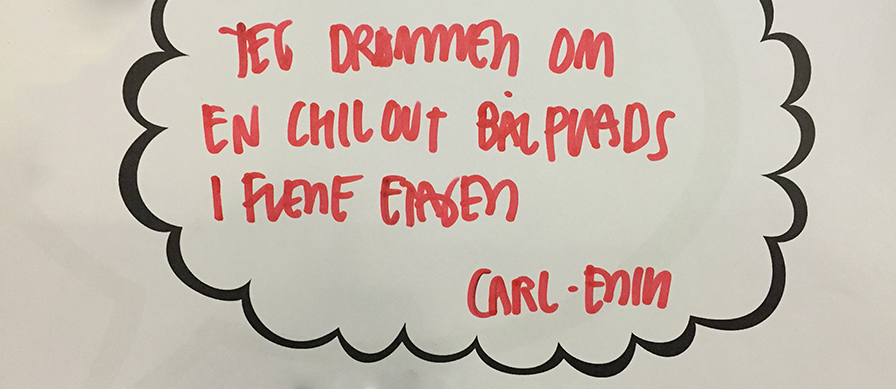 JEG DRØMMER OM
EN CHILOUT BÅLPLADS
I FLERE ETAGER
CARL-EMIL